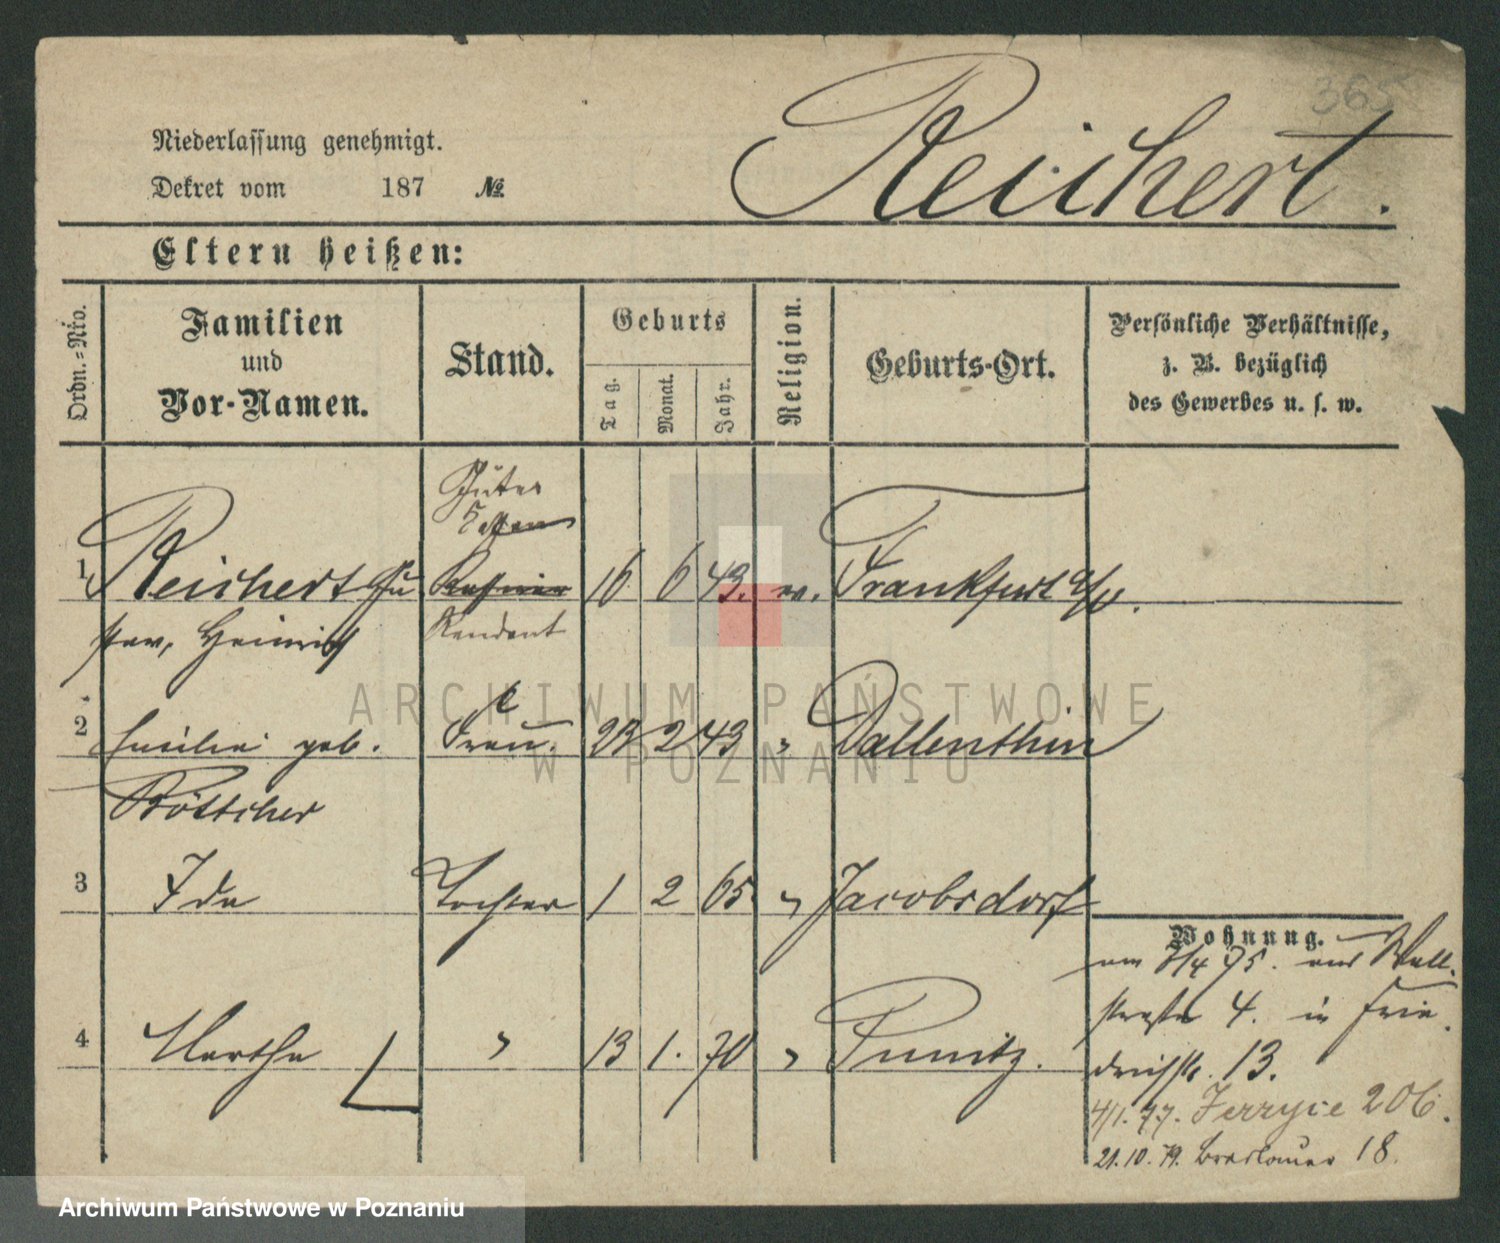 365
Niederlassung genehmigt.
Reichert.
Dekret vom 187 №
Eltern heißen:
Ordn.-Nro.
Familien
und
Vor-Namen.
Stand.
Geburts
Tag.
Monat.
Jahr.
Religion.
Geburts-Ort.
Persönliche Verhältnisse,
z. B. bezüglich
des Gewerbes u. s. w.
Güter
1 Reichert Gu 16 6 43. ev. Frankfurt a/O.
stav, Heinrich Rendant
2 geb. Frau. 2 43 " Dallenthin
Böttcher
3 Ida Tochter 1 2 65 " Jacobsdorf
Wohnung.
am 7/4 75. aus Wall-
straße 4. in Frie-
4 Martha " 13 1. 70 " Punitz.
drichstr. 13.
4/1. 77. Jerzyce 206.
21.10.79. Breslauer 18.
ARCHIWUM PAŃSTWOWE
W POZNANIU
Archiwum Państwowe w Poznaniu